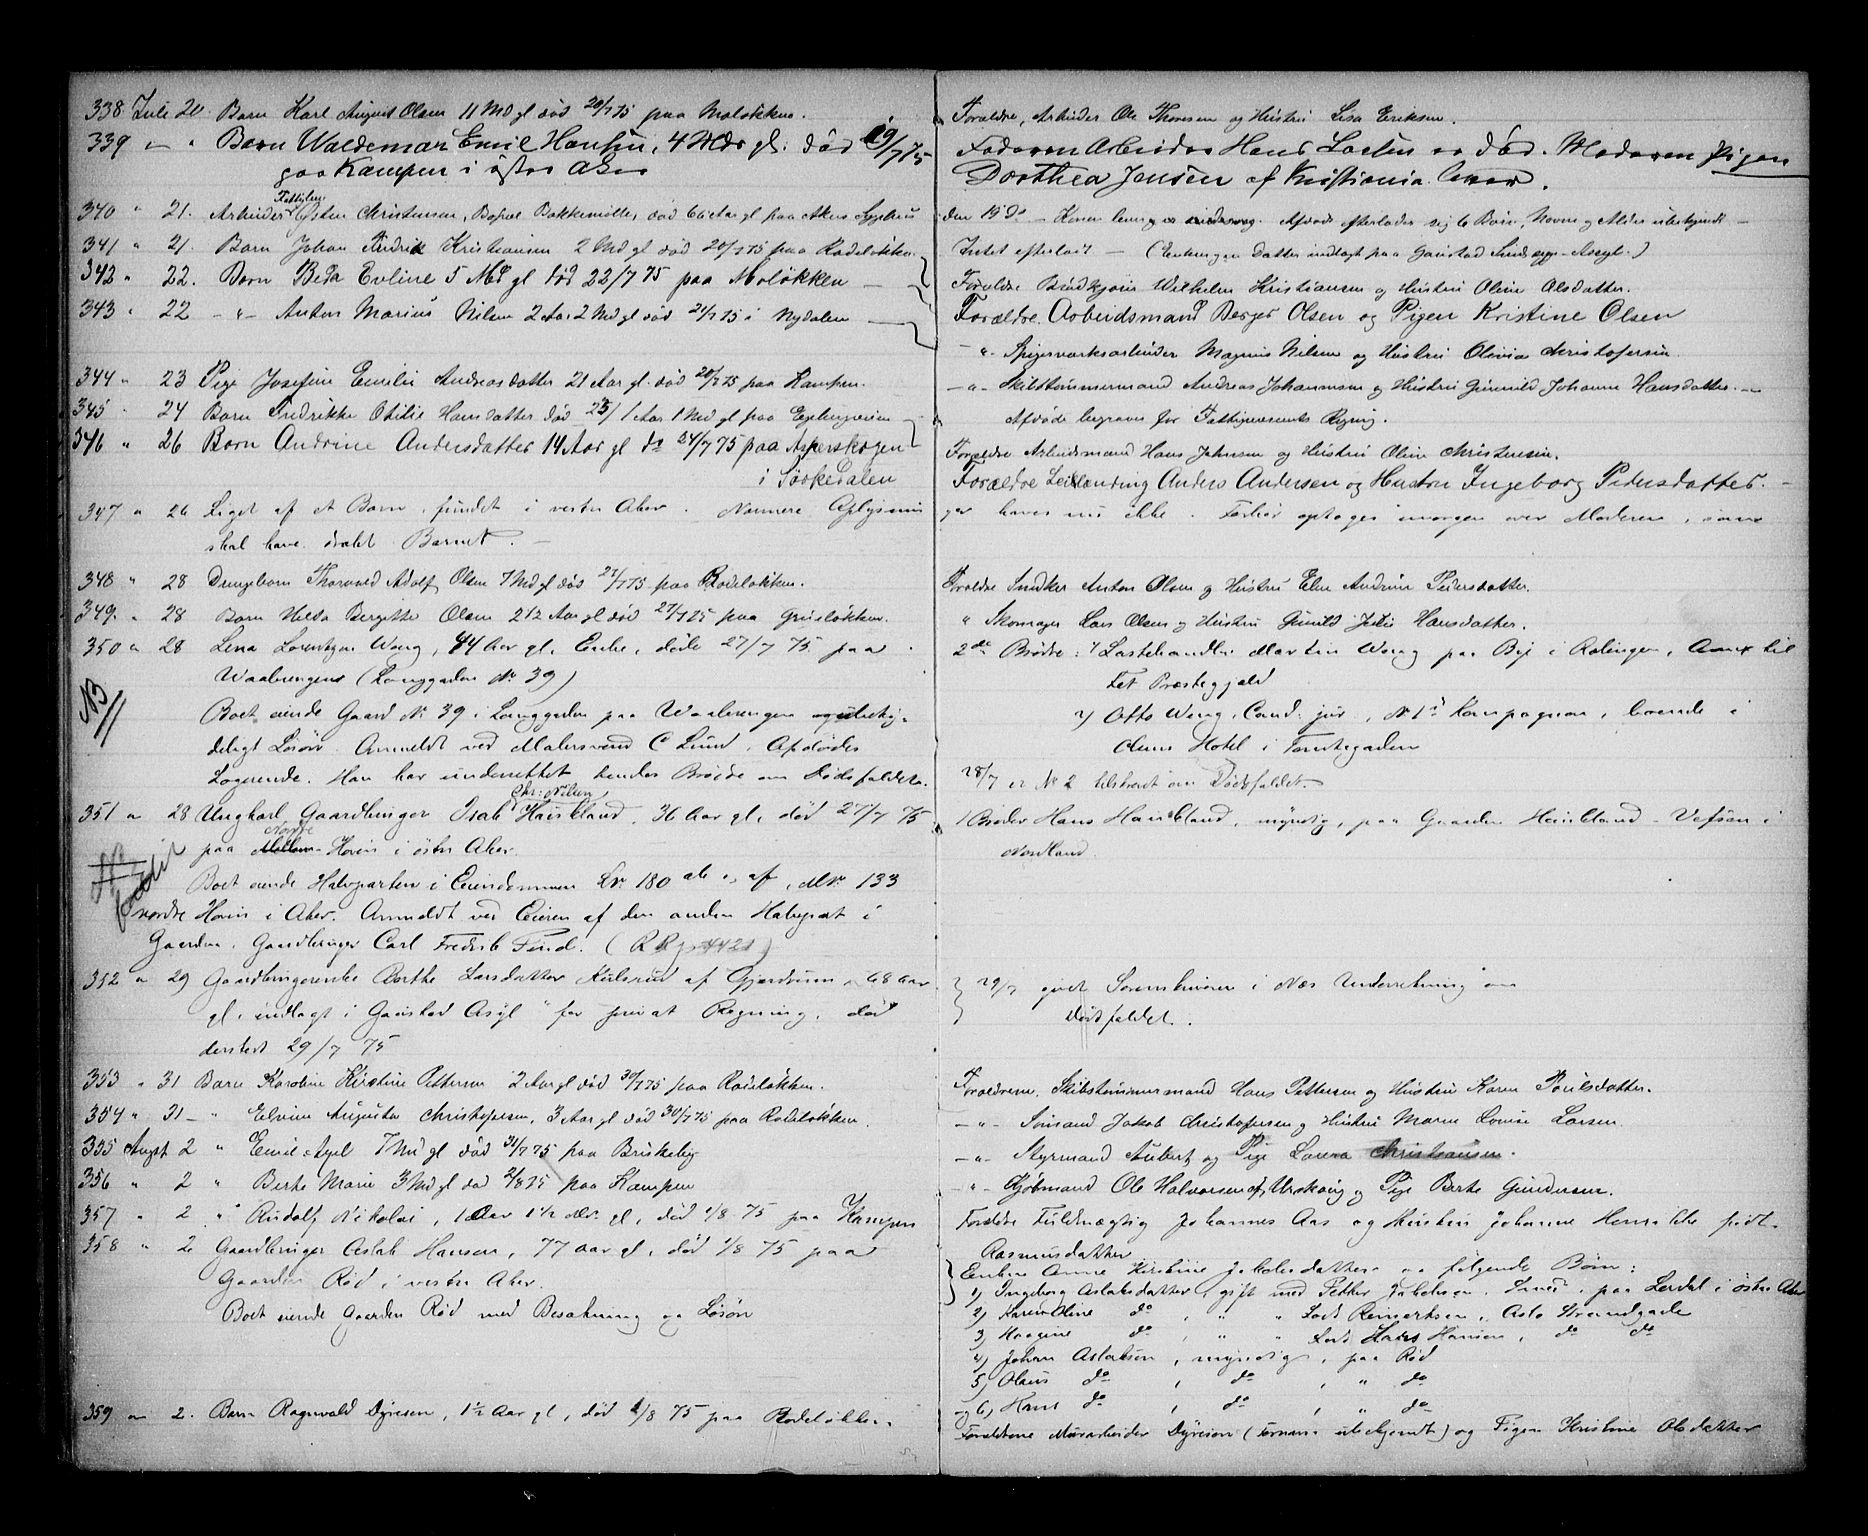 338 Juli 20. Barn Karl August Olsen 11 Md gl død 20/7 75 paa Moløkken.
339 — " Barn Waldemar Emil Hansen, 4 Mdr gl. død 19/7 75
paa Kampen i østre Aker
Fattiglem
340 " 21. Arbeider Østen Christensen, Bopæl Bakkemøllen, død 66 Aar gl paa Akers Sygehus
341 " 21. Barn Johan Fredrik Kristiansen 2 Md gl død 20/7 75 paa Rodeløkken.
342 " 22. Barn Beda Evline 5 Md gl død 22/7 75 paa Moløkken —
343 " 22 — " — Anton Marius Nilsen 2 Aar 2 Md gl død 21/7 75 i Nydalen —
344 " 23 Pige Josefine Emilie Andreasdatter 21 Aar gl. død 20/7 75 paa Kampen.
345 " 24 Barn Fredrikke Othilie Hansdatter død 23/ 1 Aar 1 Md gl paa
346 " 26 Barn Andrine Andersdatter 14 Aar gl do 24/7 75 paa Asperskogen
i Sørkedalen
347 " 26 Liget af et Barn, fundet i vestre Aker. Nærmere Oplysnin
skal have dræbt Barnet. —
348 " 28 Drengebarn Thorvald Adolf Olsen 7 Md gl død 27/7 75 paa Rodeløkken.
349. " 28 Barn Hilda Bergitte Olsen 2 1/2 Aar gl død 27/7 75 paa Grusløkken.
350 " 28 Lena Lorentzen Wang, 44 Aar gl, Enke, døde 27/7 75 paa
Waalerengen (Langgaden No 39)
NB
Boet eiende Gaard No 39 i Langgaden paa Waalerengen og ubety-
deligt Løsøre. Anmeldt ved Malersvend C Lund, Afdødes
Logerende. Han har underrettet hendes Brødre om Dødsfaldet.
Chr: Nilsen
351 " 28 Ungkarl, Gaardbruger Isak Hauskland, 36 Aar gl, død 27/7 75
Nordre
paa Mellem-Hovin i østre Aker.
Boet eiende Halvparten i Eiendommen Lr. 180 af, Mr. 133
nordre Hovin i Aker. Anmeldt ved Eieren af den anden Halvpart i
Gaarden, Gaardbruger Carl Fredrik Find. (
352 " 29 Gaardbrugerenke Berthe Larsdatter Kulsrud af Gjerdrum, 68 Aar
gl, indlagt i Gaustad Asyl for privat Regning, død
dersteds 29/7 75
353 " 31 Barn Karoline Kirstine Pettersen 2 Aar gl død 30/7 75 paa Rodeløkken.
354 " 31 — " Elvine Augusta Christofersen, 3 Aar gl død 30/7 75 paa Rodeløkken.
355 Augst 2 " Emil Axel 7 Md gl død 31/7 75 paa Briskeby
356 " 2 " Berte Marie 3 Md gl død 2/8 75 paa Kampen
357 " 2 " Rudolf Nikolai, 1 Aar 1 1/2 Md. gl, død 1/8 75 paa Kampen
358 " 2 Gaardbruger Aslak Hansen, 77 Aar gl, død 1/8 75 paa
Gaarden Rød i vestre Aker.
Boet eiende Gaarden Rød med Besætning og Løsøre
359 " 2. Barn Ragnvald Dyresen, 1 1/2 Aar gl, død 1/8 75 paa Rodeløkken.
Forældre, Arbeider Ole Thoresen og Hustru Lisa Eriksen.
Faderen Arbeider Hans Larsen er død. Moderen Pigen
Dorthea Jensen af Kristiania lever.
den 19 do — Konen Afdøde efterlader sig 6 Børn, Navne og Alder ubekjendt —
Intet efterladt — (Enken og en Datter indlagt paa Gaustad Sindssyge-Asyl.)
Forældre Wilhelm Kristiansen og Hustru Oline Olsdatter.
Forældre. Arbeidsmand Berger Olsen og Pigen Kristine Olsen
— " — Spigerværksarbeider Magnus Nilsen og Hustru Olivia Kristofersen
— " — Skibstømmermand Andreas Johannesen og Hustru Gunild Johanne Hansdatter. —
Afdøde begraves for Fattigvæsenets Regning.
Forældre Arbeidsmand Hans Johnsen og Hustru Oline Christensen.
Forældre Leilænding Anders Andersen og Hustru Ingeborg Pedersdatter. —
ger haves nu ikke. Forhør optages imorgen over Moderen, som
Forældre Snedker Anton Olsen og Hustru Elen Andrine Pedersdatter.
" Skomager Lars Olsen og Hustru Gunild Julie Hansdatter.
2de Brødre: 1/ Lastehandler Martin Wang paa Bye i Rælingen, Annex til
Fet Præstegjæld
2) Otto Wang, Cand: jur, No 1 Kompagnon, boende i
Hotel i Tomtegaden
28/7 er No 2 tilskrevet om Dødsfaldet.
1 Broder Hans Hauskland, myndig, paa Gaarden Hauskland - Vefsen i
Nordland.
29/7 givet Sorenskriveren i Næs Underretning om
Dødsfaldet.
Forældrene, Skibstømmermand Hans Pettersen og Hustru Karen Poulsdatter.
— " — Sømand Jakob Christofersen og Hustru Maren Lovise Larsen.
— " — Styrmand Aubert og Pige Laura Christiansen.
— " — Kjøbmand Ole Halvorsen af Urskoug og Pige Berte Gundersen.
Forældre Fuldmægtig Johannes Aas og Hustru Johanne Henrikke født
Rasmusdatter
Enken Anne Kirstine Jakobsdatter og følgende Børn:
1) Ingeborg Aslaksdatter, gift med Petter Jakobsen, paa Lørdal i østre Aker
2) Karen Oline do , " " Lars Reinertsen, Oslo Strandgade
3) Haagine do , " " Hans Hansen, do do
4) Johan Aslaksen, myndig, paa Rød
5) Olaus do , do , " do
og 6) Hans do , do , " do
Forældrene Murarbeider Dyresen (Fornavn ubekjendt) og Pigen Kristine Olsdatter